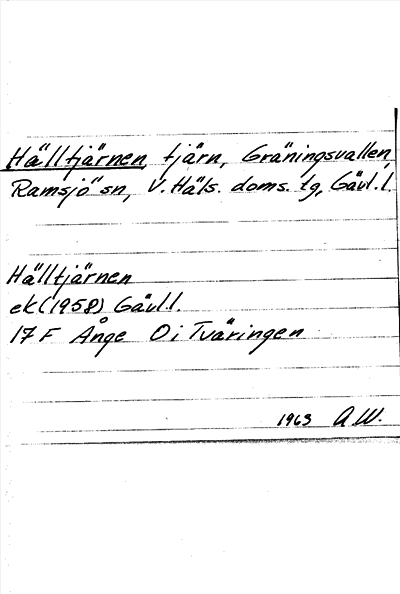 Hälltjärnen, tjärn, Gräningsvallen,
Ramsjö sn, V. Häls. doms. tg, Gävl. l.
Hälltjärnen
ek (1958) Gävl. l.
17 F Ånge O i Tväringen
1963 A.W.